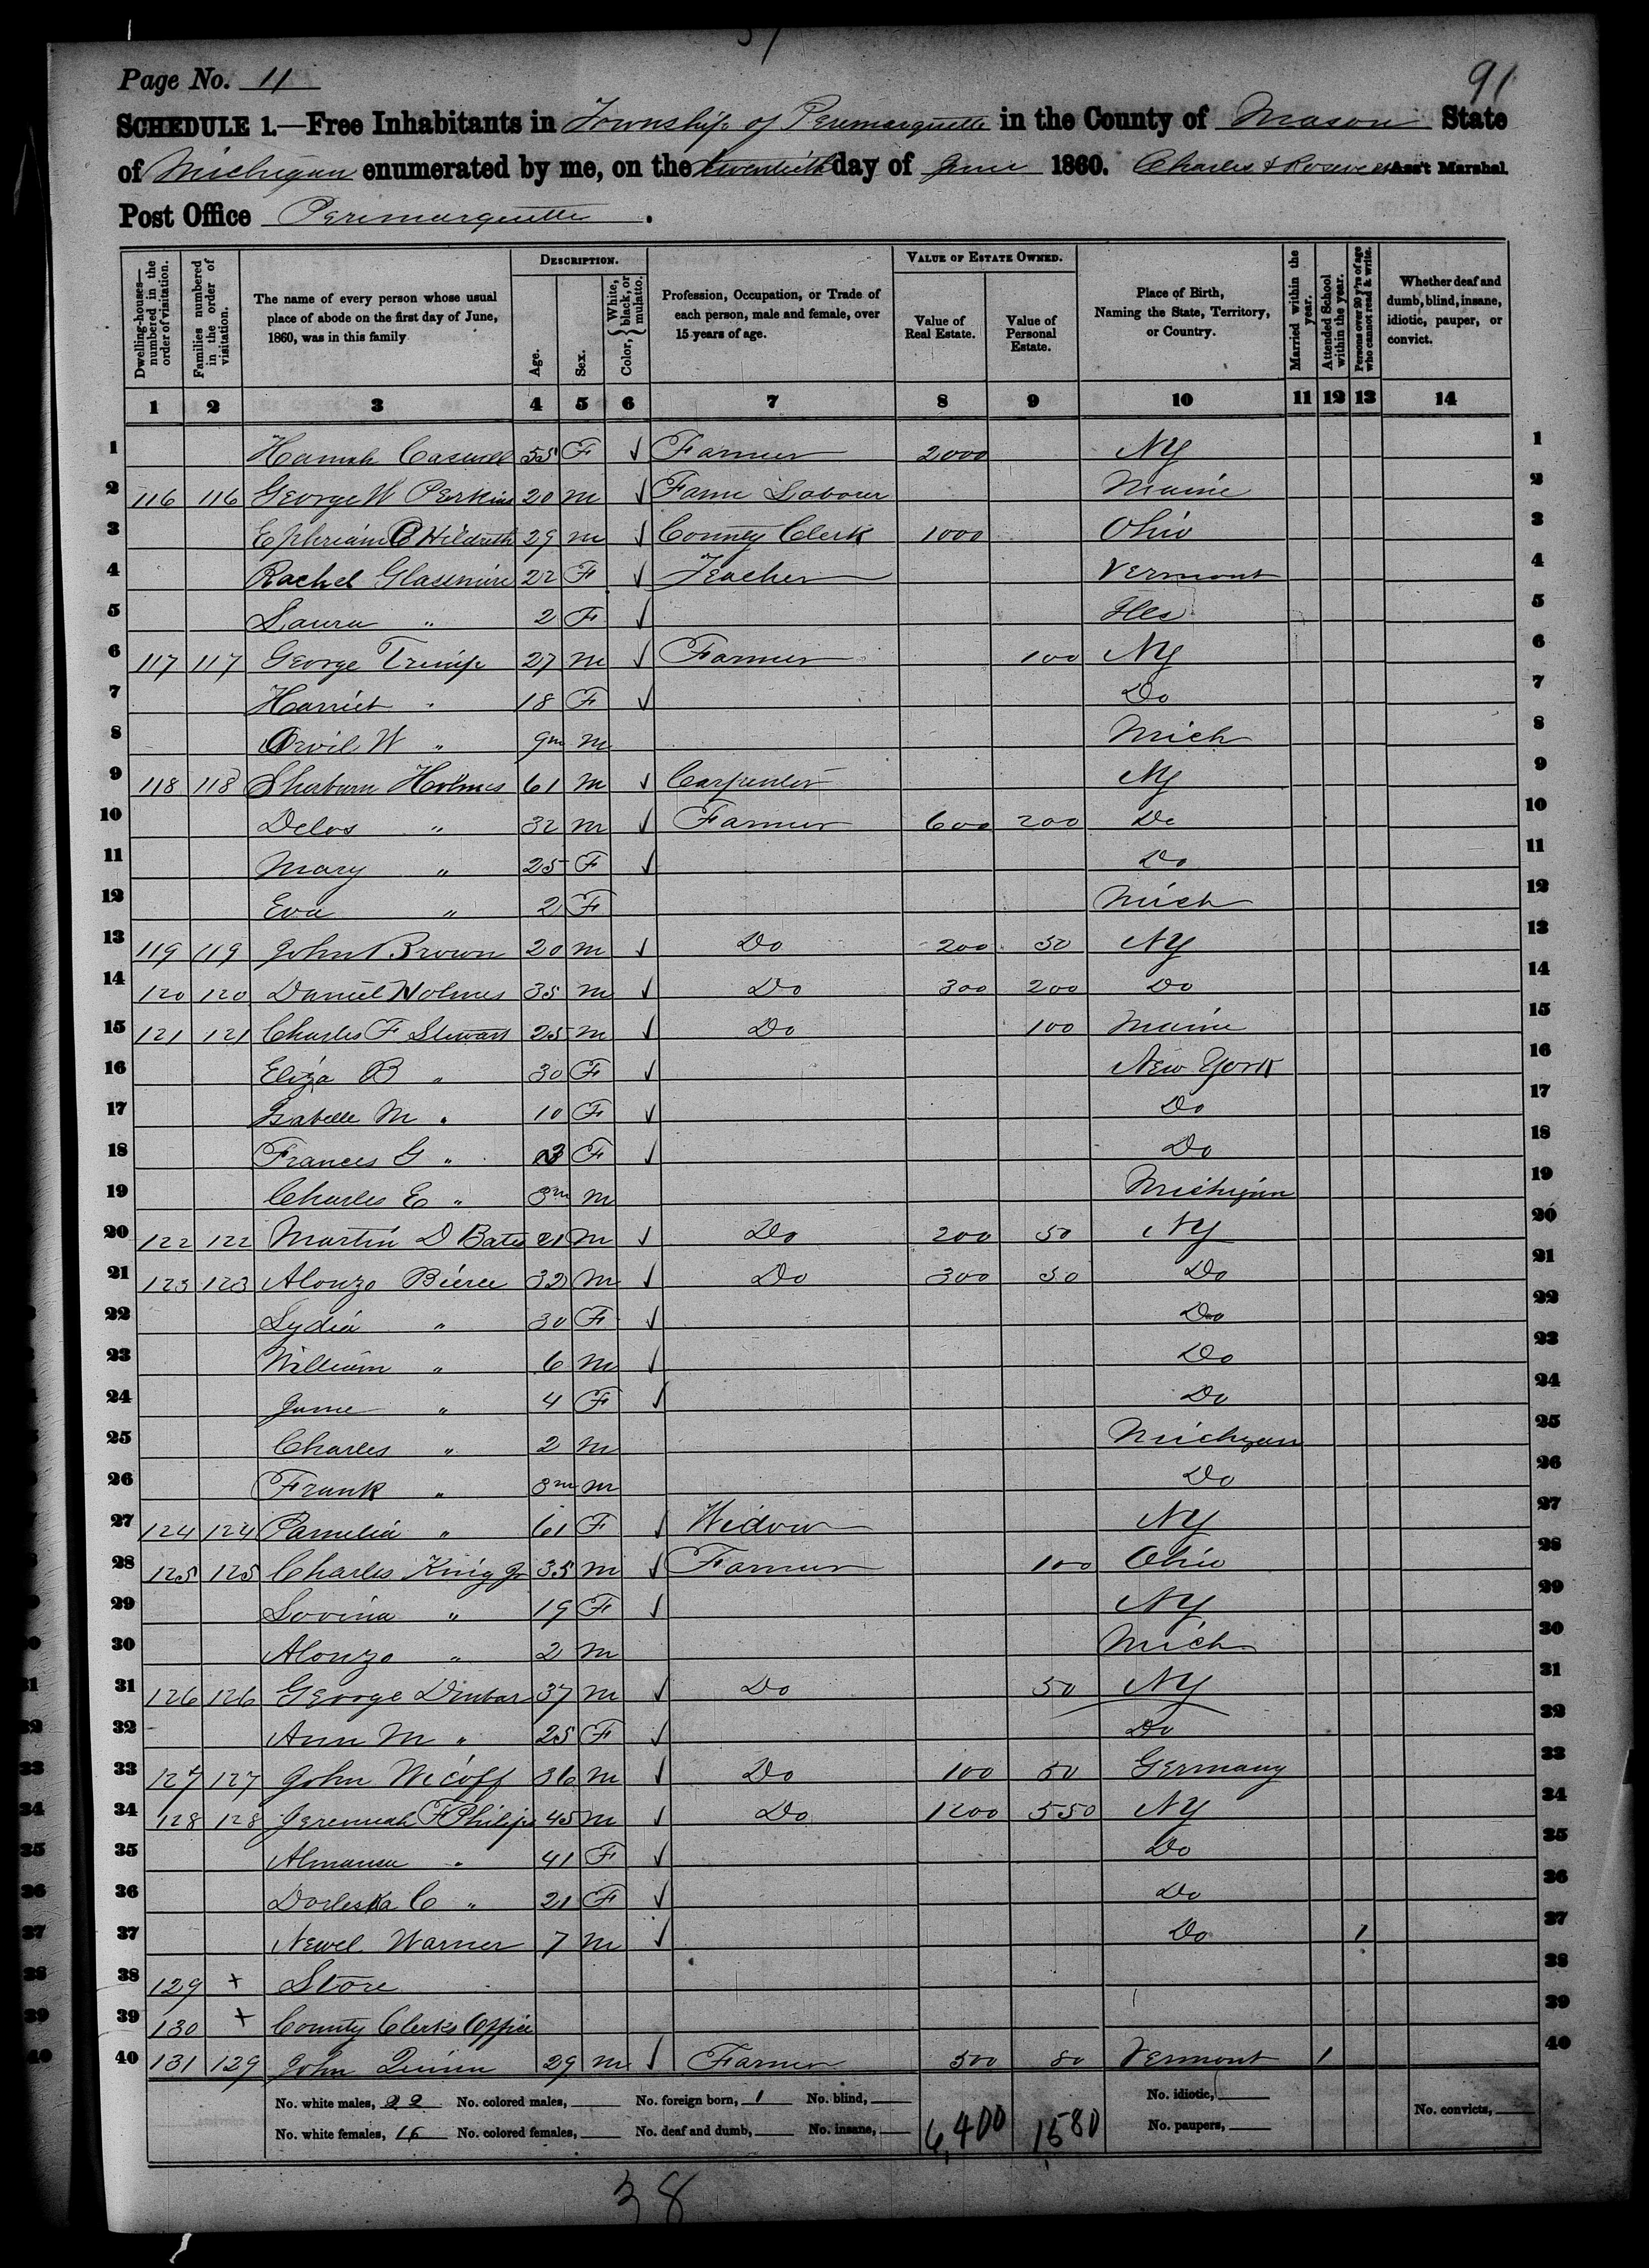 Page No. 11
91
SCHEDULE 1.—Free Inhabitants in Township of Peremarquette in the County of Mason State
of Michigan enumerated by me, on the twentieth day of June 1860. Charles Ass't Marshal.
Post Office Peremarquette.
Dwelling-houses—numbered in the order of visitation.
Families numbered in the order of visitation.
The name of every person whose usual place of abode on the first day of June, 1860, was in this family
DESCRIPTION.
Age.
Sex.
Color, { White, black, or mulatto.
Profession, Occupation, or Trade of each person, male and female, over 15 years of age.
VALUE OF ESTATE OWNED.
Value of Real Estate.
Value of Personal Estate.
Place of Birth, Naming the State, Territory, or Country.
Married within the year.
Attended School within the year.
Persons over 20 y'rs of age who cannot read & write.
Whether deaf and dumb, blind, insane, idiotic, pauper, or convict.
1 2 3 4 5 6 7 8 9 10 11 12 13 14
1 Hannah Caswell 55 F ✓ Farmer 2000 NY 1
2 116 116 George W Perkins 20 m ✓ Farm Labour Maine 2
3 Ephriam C Hildreth 29 m ✓ County Clerk 1000 Ohio 3
4 Rachel Glassmire 22 F ✓ Teacher Vermont 4
5 Laura " 2 F ✓ Ills 5
6 117 117 George Tripp 27 m ✓ Farmer 100 NY 6
7 Harriet " 18 F ✓ Do 7
8 Orvil W " 9m m Mich 8
9 118 118 Sharburn Holmes 61 m ✓ Carpenter NY 9
10 Delos " 32 m ✓ Farmer 600 200 Do 10
11 Mary " 25 F ✓ Do 11
12 Eva " 2 F Mich 12
13 119 119 John Brown 20 m ✓ Do 200 50 NY 13
14 120 120 Daniel Holmes 35 m ✓ Do 300 200 Do 14
15 121 121 Charles F Stewart 25 m ✓ Do 100 Maine 15
16 Eliza B " 30 F ✓ New York 16
17 Isabelle M " 10 F ✓ Do 17
18 Frances G " 3 F ✓ Do 18
19 Charles E " 3m m Michigan 19
20 122 122 Martin D Bates 21 m ✓ Do 200 50 NY 20
21 123 123 Alonzo Bierce 32 m ✓ Do 300 50 Do 21
22 Lydia " 30 F ✓ Do 22
23 William " 6 m ✓ Do 23
24 Jane " 4 F ✓ Do 24
25 Charles " 2 m Michigan 25
26 Frank " 3m m Do 26
27 124 124 Pamelia " 61 F ✓ Widow NY 27
28 125 125 Charles King Jr 35 m ✓ Farmer 100 Ohio 28
29 Lovina " 19 F ✓ NY 29
30 Alonzo " 2 m Mich 30
31 126 126 George Dunbar 37 m ✓ Do 50 NY 31
32 Ann M " 25 F ✓ Do 32
33 127 127 John Wicoff 36 m ✓ Do 100 50 Germany 33
34 128 128 Jeremiah F Philips 45 m ✓ Do 1200 550 NY 34
35 " 41 F ✓ Do 35
36 Dorleska C " 21 F ✓ Do 36
37 Newel Warner 7 m ✓ Do 1 37
38 129 + Store 38
39 130 + County Clerks Office 39
40 131 129 John Quinn 29 m ✓ Farmer 500 80 Vermont 1 40
No. white males, 22 No. colored males, No. foreign born, 1 No. blind, No. idiotic,
No. white females, 16 No. colored females, No. deaf and dumb, No. insane, 6,400 1,580 No. paupers, No. convicts,
38